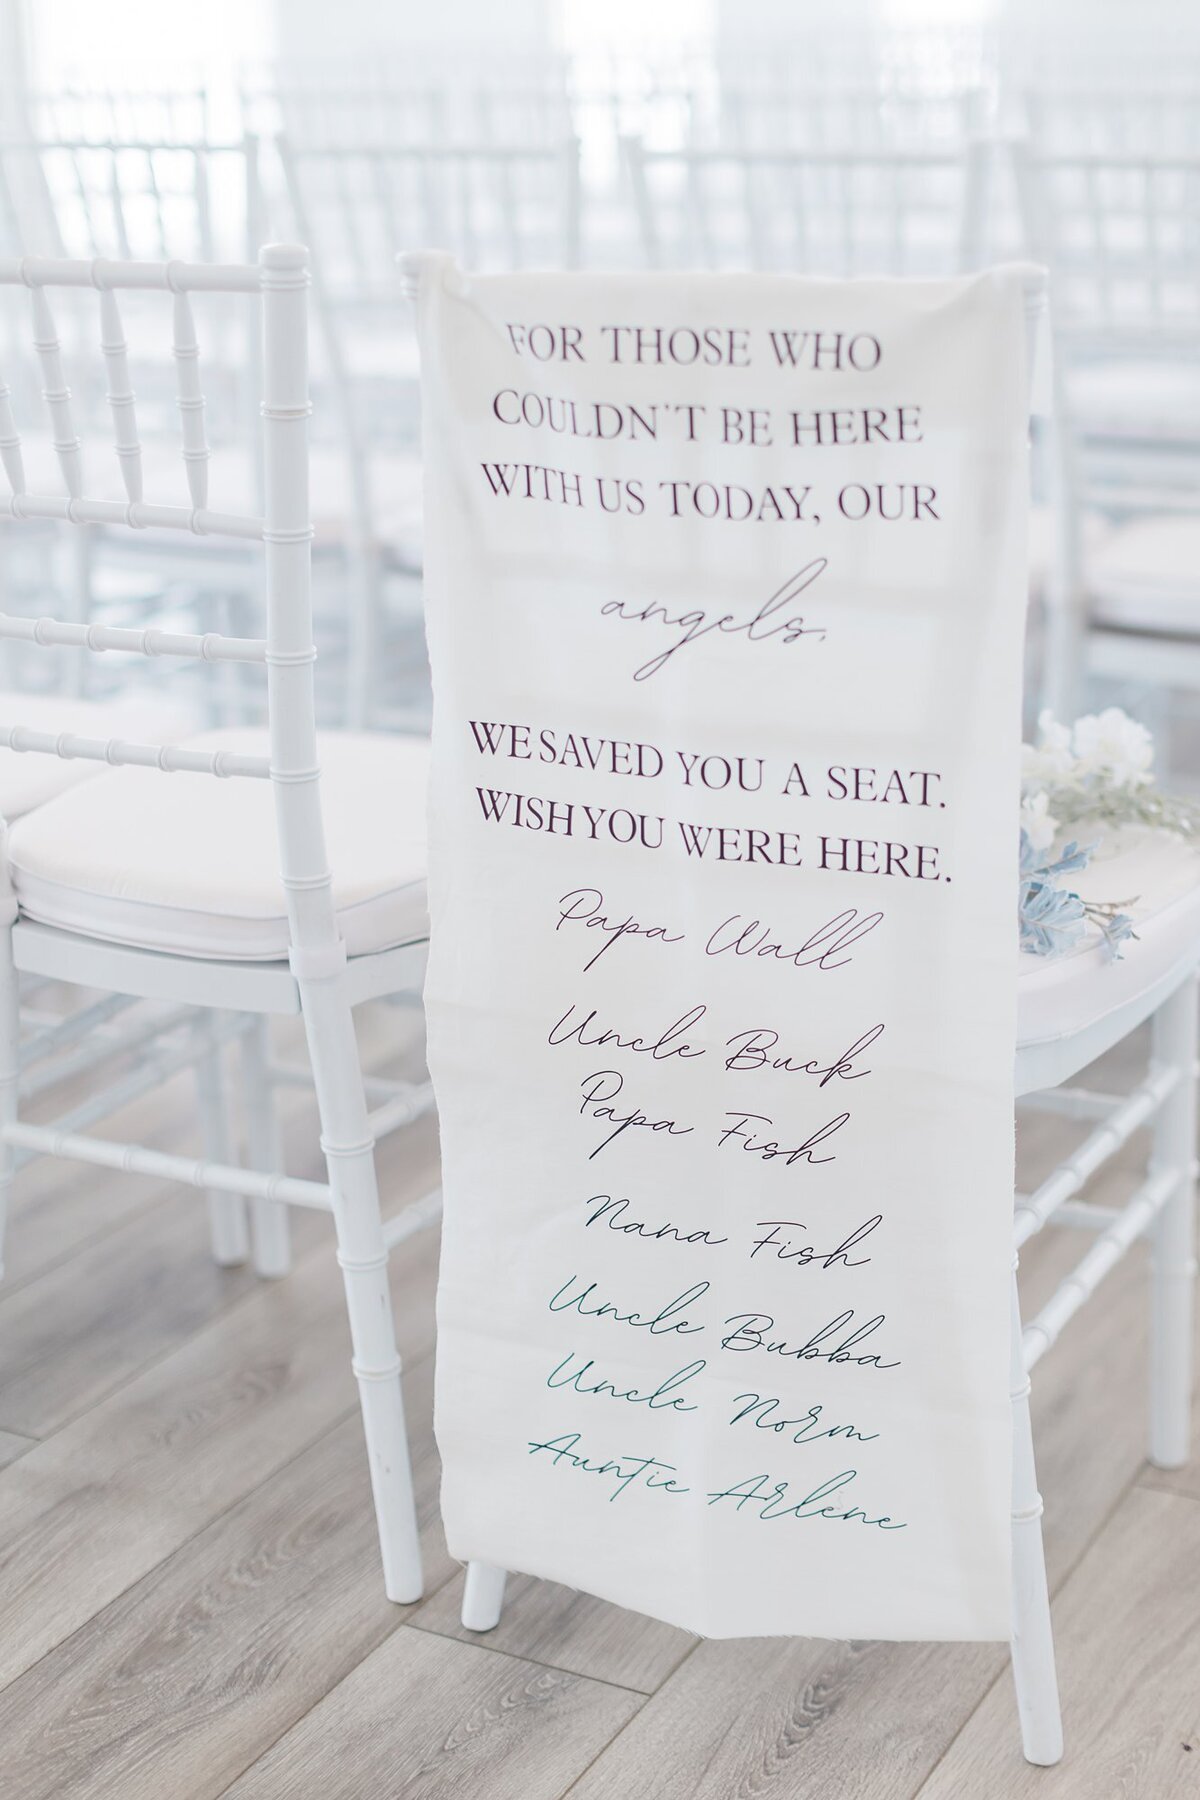 FOR THOSE WHO
COULDN'T BE HERE
WITH US TODAY, OUR
angels.
WE SAVED YOU A SEAT.
WISH YOU WERE HERE.
Papa Wall
Uncle Buck
Papa Fish
Nana Fish
Uncle Bubba
Uncle Norm
Auntie Arlene